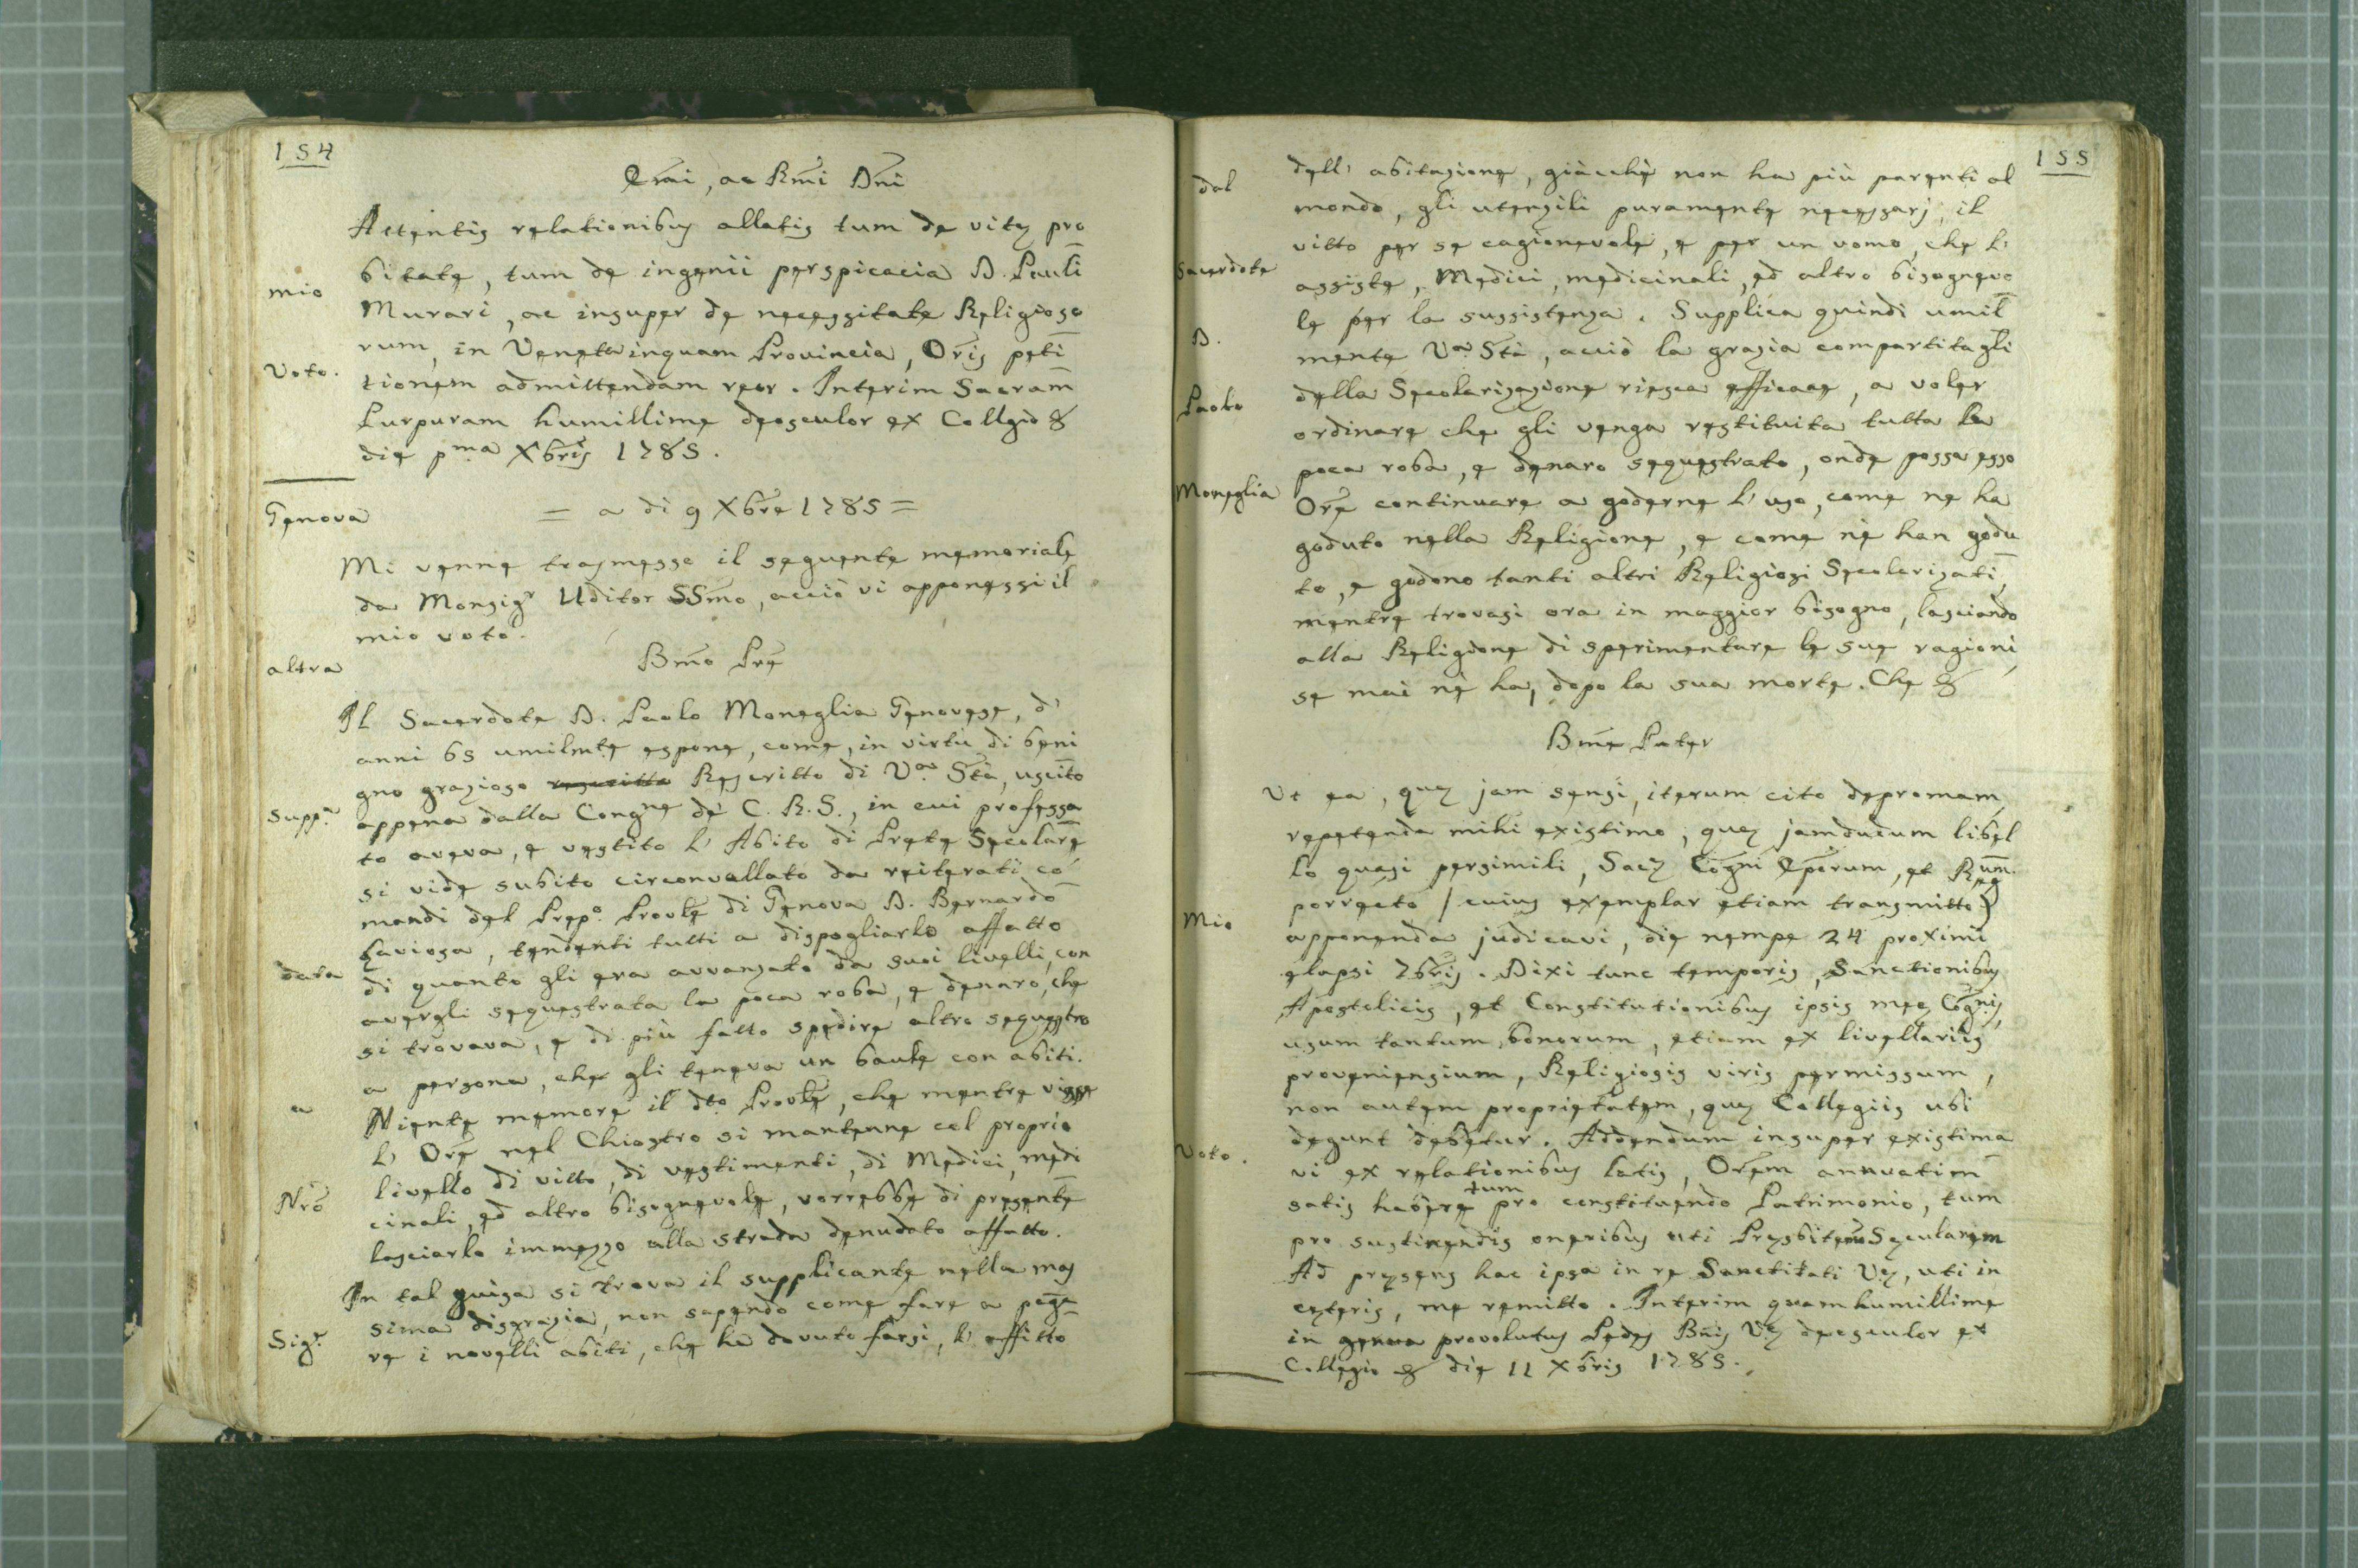 154
Emi, ac Rmi Dni
Attentis relationibus allatis tum de vitę pro
bitate, tum de ingenii perspicacia D. Pauli
mio
Murari, ac insuper de necessitate Religioso
rum, in Veneta inquam Provincia, Oris peti
Voto.
tionem admittendam reor. Interim Sacram
Purpuram humillime deosculor ex Collgio &
die pma Xbris 1785.
Genova
= a di 9 Xbre 1785 =
Mi venne trasmesso il seguente memoriale
da Monsigr Uditor SSmo, acciò vi apponessi il
mio voto.
altra
Bmo Pre
Il Sacerdote D. Paolo Moneglia Genovese, d'
anni 65 umilmte espone, come, in virtù di beni
gno grazioso rescritto Rescritto di Va Stà, uscito
Suppa
appena dalla Congne de' C. R. S., in cui professa
to aveva, e vestito l' Abito di Prete Secolare
si vide subito circonvallato da reiterati co
mandi del Prepo Provle di Genova D. Bernardo
Laviosa, tendenti tutti a dispogliarlo affatto
data
di quanto gli era avvanzato da suoi livelli, con
avergli sequestrata la poca roba, e denaro, che
si trovava, e di più fatto spedire altro sequestro
a persona, che gli teneva un baule con abiti.
a
Niente memore il dto Provle, che mentre visse
l' Ore nel Chiostro si mantenne col proprio
livello di vitto, di vestimenti, di Medici, medi
Nro
cinali, ed altro bisognevole, vorrebbe di presente
lasciarlo immezzo alla strada denudato affatto.
In tal guisa si trova il supplicante nella mas
sima disgrazia, non sapendo come fare a paga
Sigr
re i novelli abiti, che ha dovuto farsi, l' affitto
155
dal
dell' abitazione, giacchè non ha più parenti al
mondo, gli utensili puramente necessarj, il
vitto per se cagionevole, e per un uomo, che l'
Sacerdote
assiste, Medici, medicinali, ed altro bisognevo
le per la sussistenza. Supplica quindi umil
D.
mente Va Stà, acciò la grazia compartitagli
della Secolarizazione riesca efficace, a voler
Paolo
ordinare che gli venga restituita tutta la
poca roba, e denaro sequestrato, onde possa esso
Moneglia
Ore continuare a goderne l' uso, come ne ha
goduto nella Religione, e come nè han godu
to, e godono tanti altri Religiosi Secolarizati,
mentre trovasi ora in maggior bisogno, lasciando
alla Religione di sperimentare le sue ragioni,
se mai nè ha, dopo la sua morte. Che &
Bme Pater
Ut ea, quę jam sensi, iterum cito depromam,
repetenda mihi existimo, quę jamdudum libel
lo quasi persimili, Sacę Cogni Eporum, et Regum
Mio
porrecto / cuius exemplar etiam transmitto)
apponenda judicavi, die nempe 24 proximi
elapsi 7bris. Dixi tunc temporis, Sanctionibus
Apostolicis, et Constitutionibus ipsis meę Cognis,
usum tantum bonorum, etiam ex livellariis
proveniensium, Religiosis viris permissum,
non autem proprietatem, quę Collegiis ubi
Voto.
degunt debetur. Addendum insuper existima
vi ex relationibus latis, Orem annuatim
satis habere tum pro constituendo Patrimonio, tum
pro sustinendis oneribus uti Presbiterum Sęcularem
Ad pręsens hac ipsa in re Sanctitati Vę, uti in
cęteris, me remitto. Interim quam humillime
in genua provolutus Pedes Bnis Vę deosculor ex
Collegio & die 11 Xbris 1785.